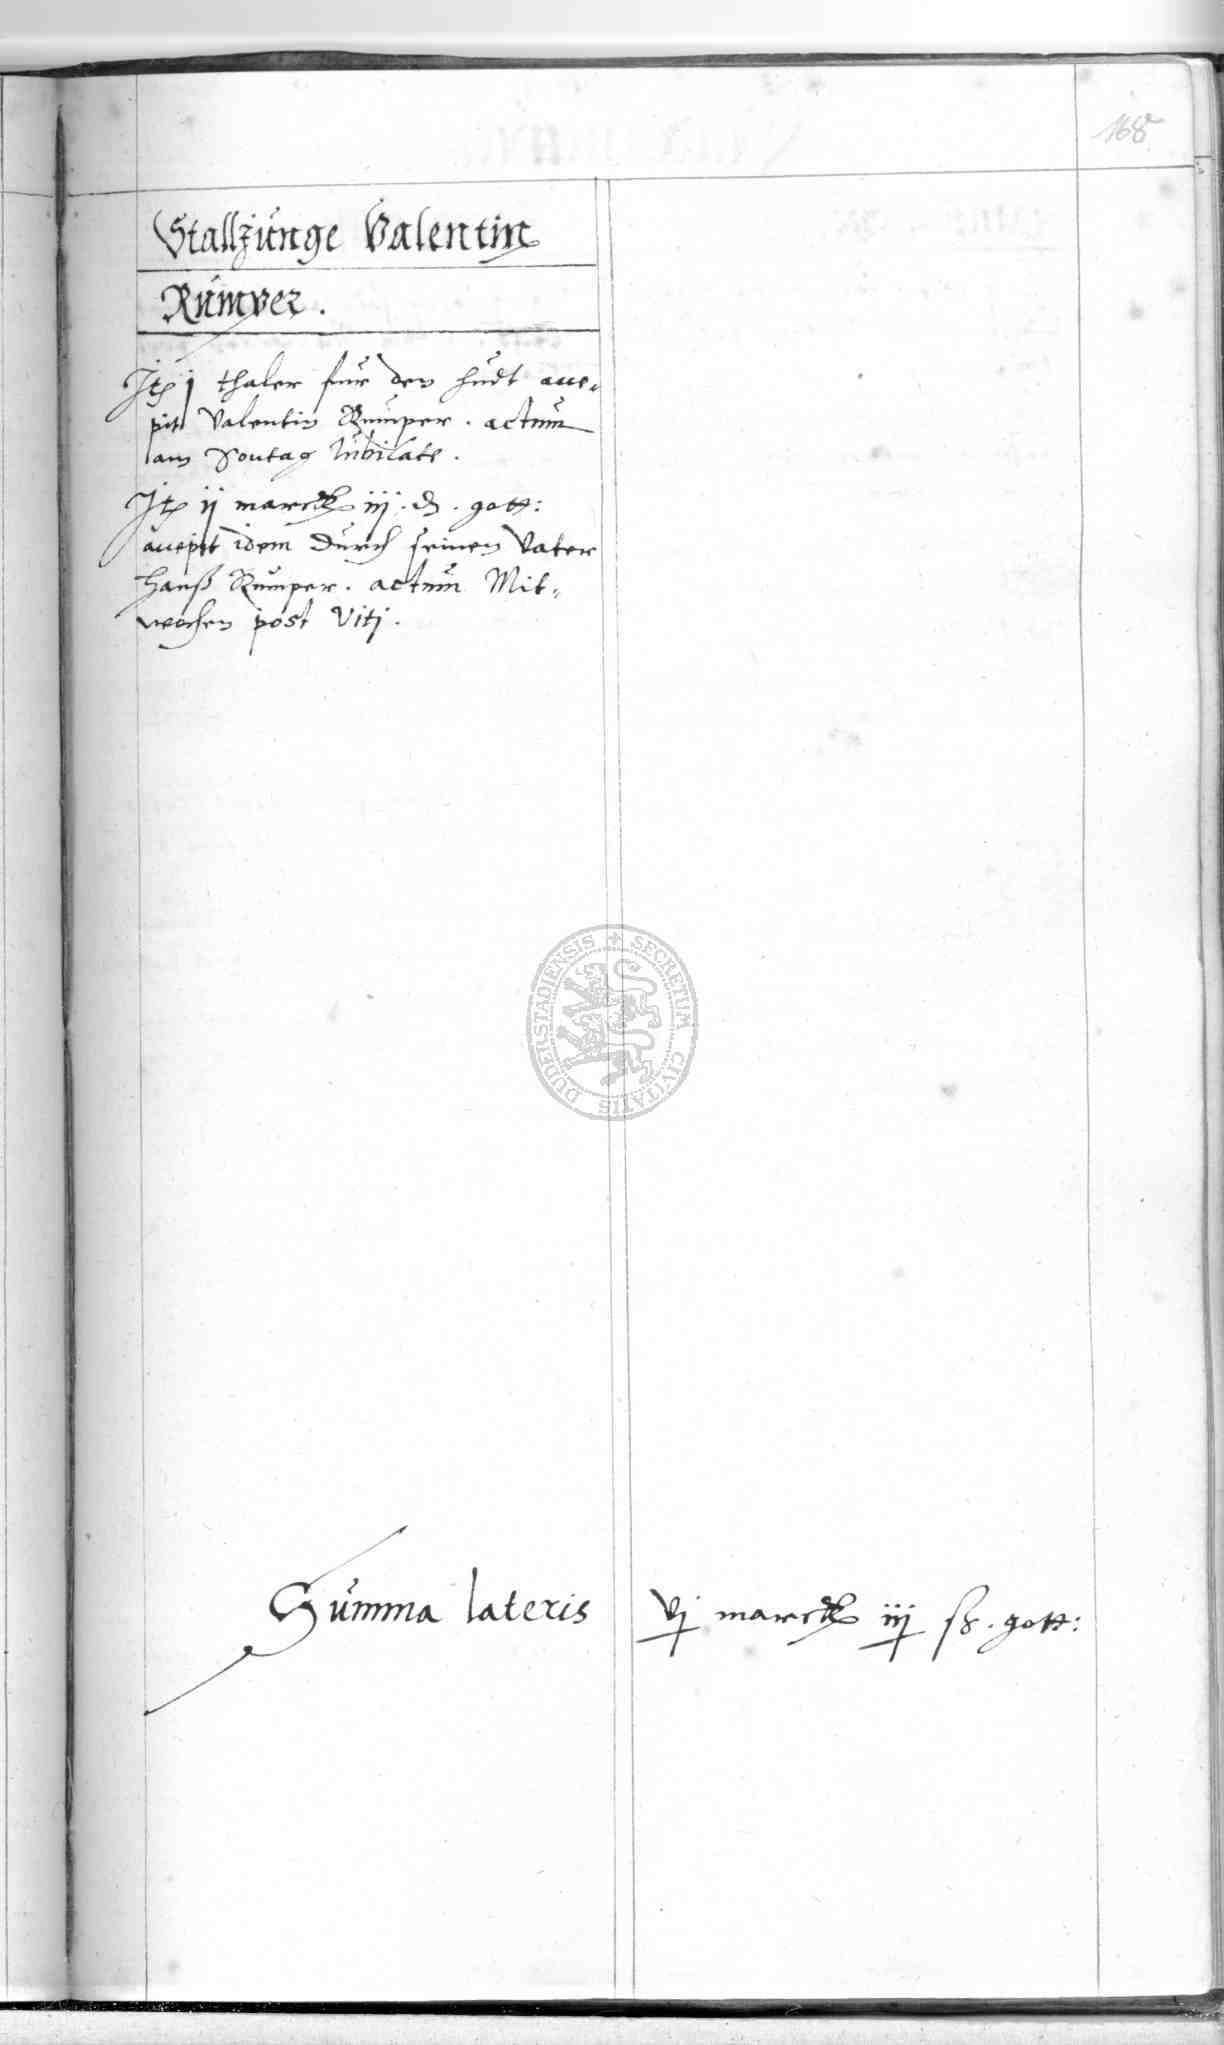 168
StallJunge Valentin
Rumper.
Itē j thaler fur den hudt acce-
pit Valentin Rumper. actum
am Sontag Iubilate.
Itē ij marck iij . gott:
accepit idem durch seinen Vater
Hanß Rumper. actum Mit-
wochen post Viti.
DUDERSTADIENSIS + SECRETUM CIVITATIS
Summa lateris vj marck iij ß. gott: